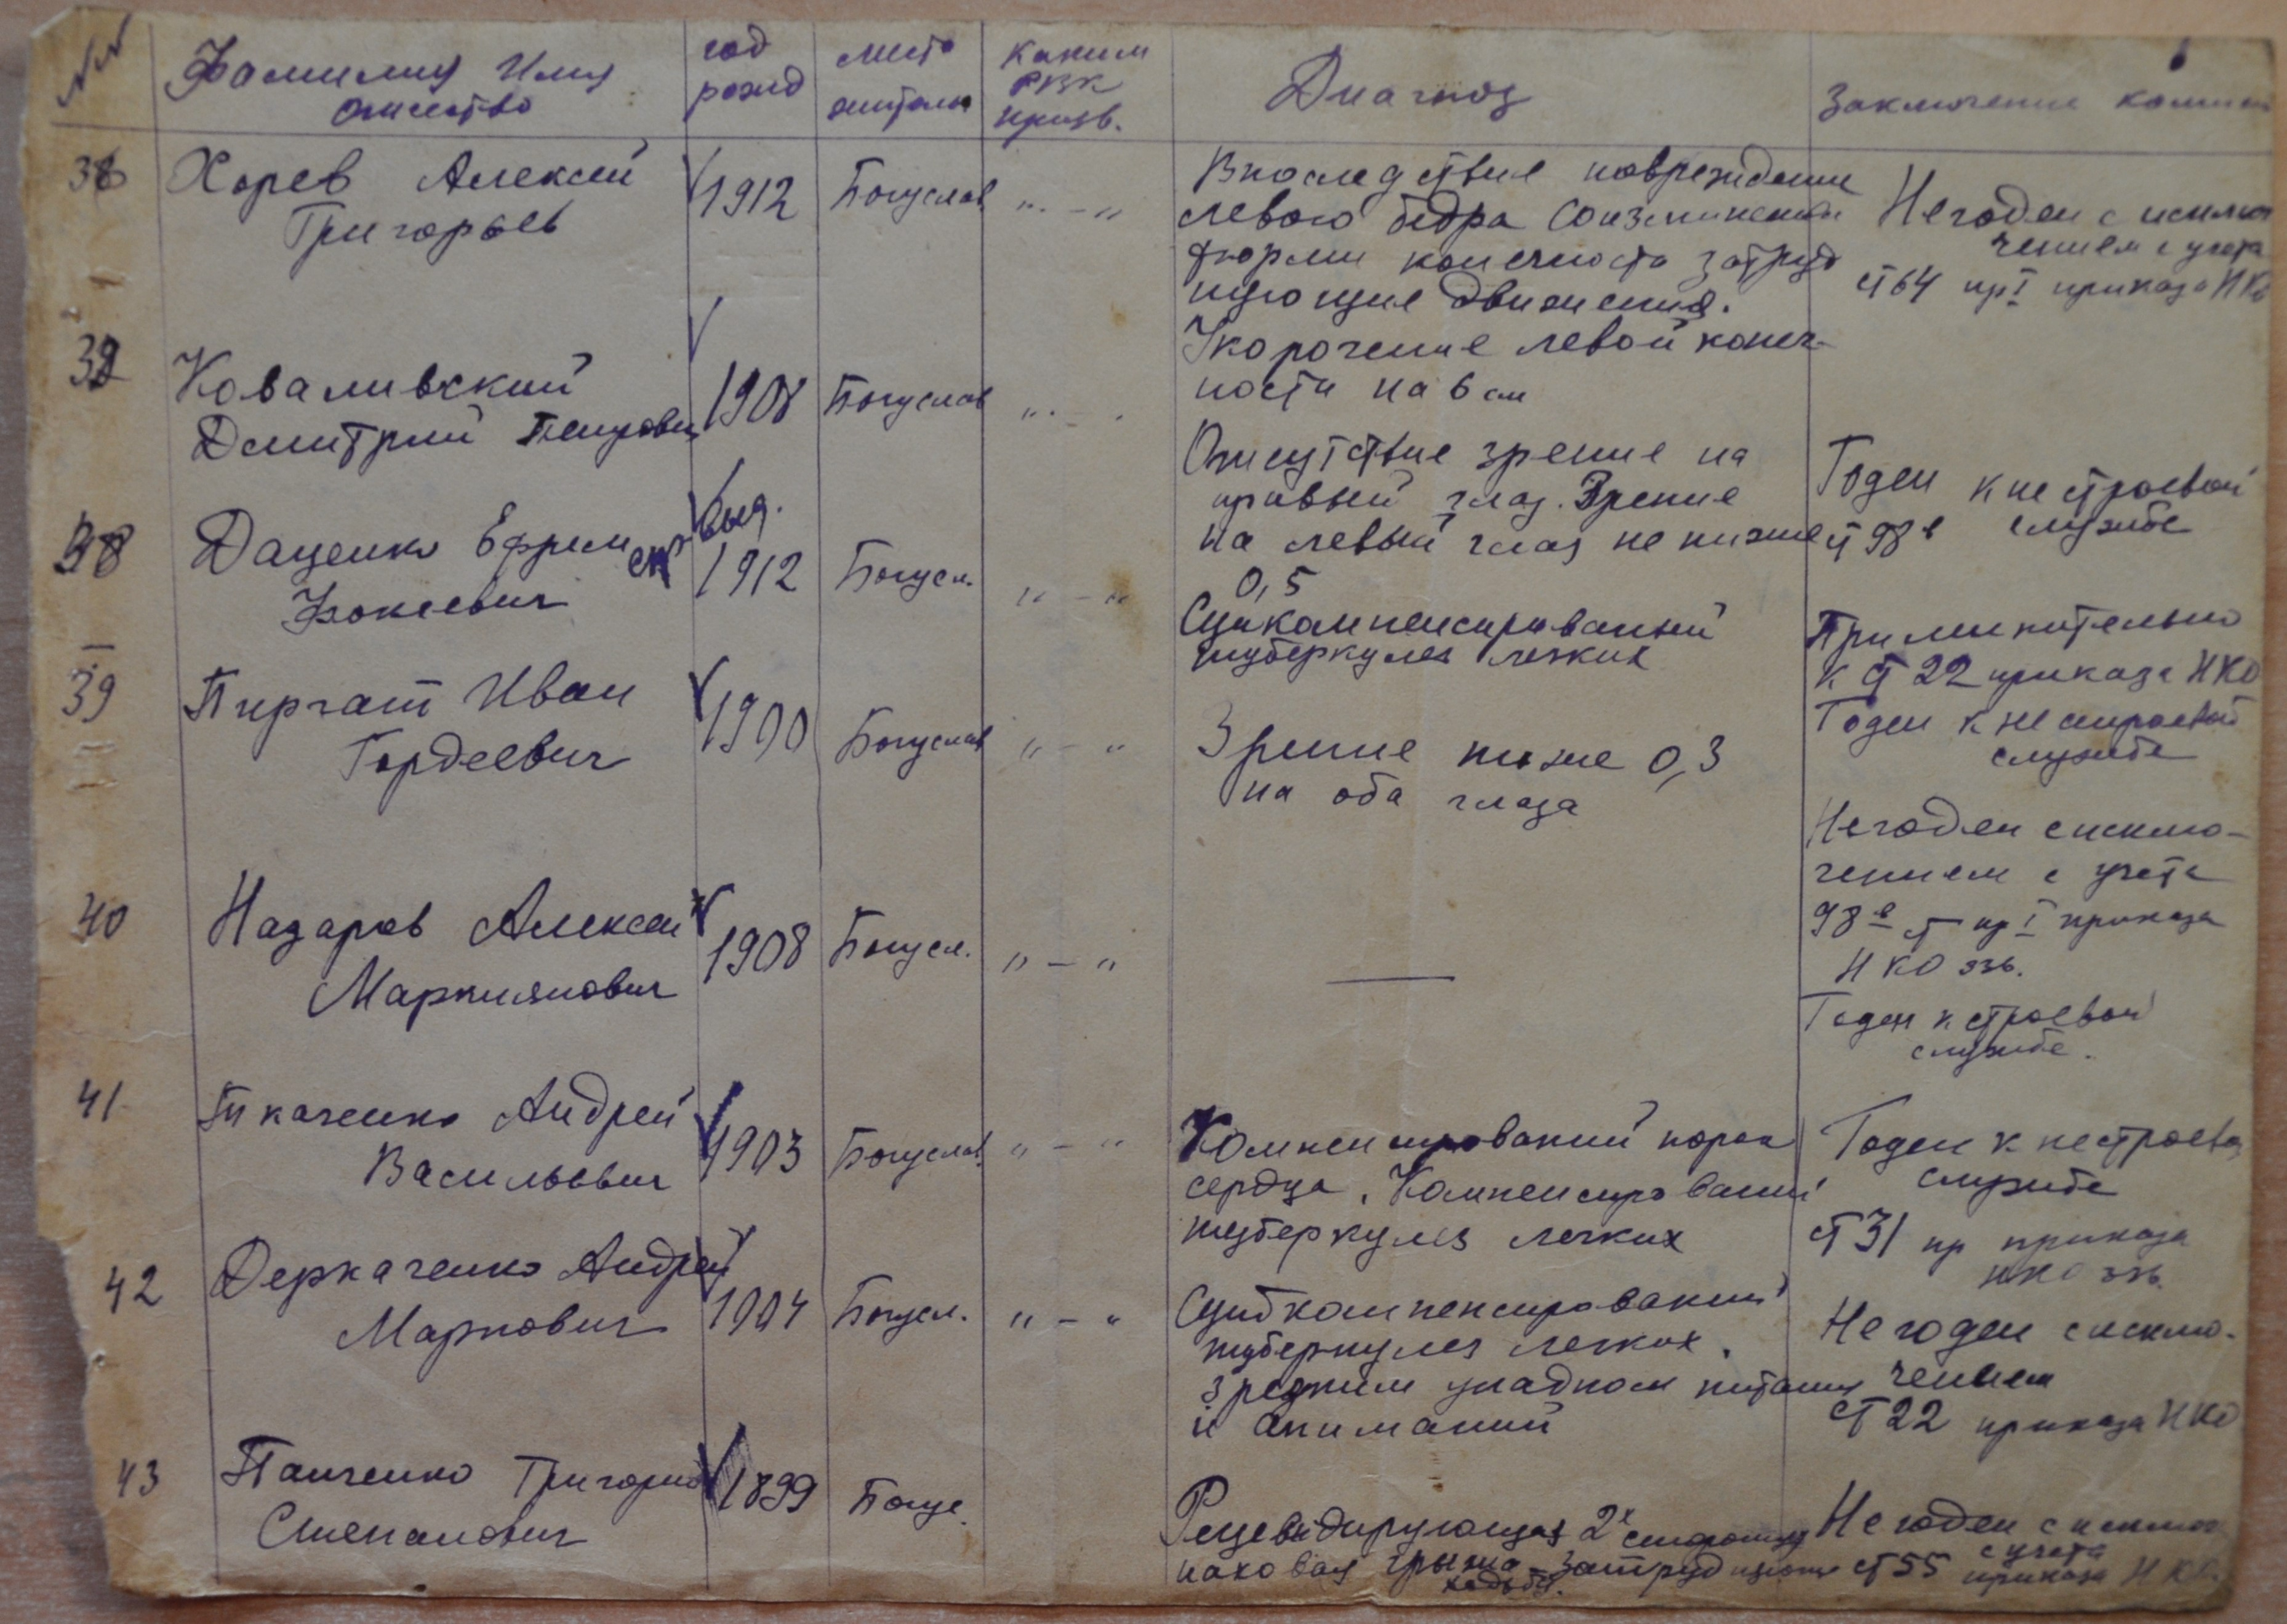 №№ Фамилия Имя отчество год рожд место жительс каким РВК призв. Диагноз Заключение комисс
38 Хорев Алексей Григорьев 1912 Богуслав " - "
Впоследствие повреждения
левого бедра
формы конечности затруд
няющие движения.
Укорочение левой конеч-
ности на 6 см
Негоден с исклю
чением с учета
ст 64 пр I приказа НКО
39 Коваливский Дмитрий Петрович 1908 Богуслав " -
Отсутствие зрение на
правый глаз. Зрение
на левый глаз не ниже
0,5
Годен к нестроевой
службе
ст 98 в
38 Даценко Ефрем Фокиевич 1912 Богусл. " - "
выд.
Субкомпенсированный
туберкулез легких
Применительно
к ст 22 приказа НКО
Годен к нестроевой
службе
39 Пиргат Иван Гордеевич 1900 Богуслав " - "
Зрение ниже 0,3
на оба глаза
Негоден с исклю-
чением с учета
98 в ст пр I приказа
НКО 336.
40 Назаров Алексей Маркиянович 1908 Богусл. " - "
—
Годен к строевой
службе.
41 Ткаченко Андрей Васильевич 1903 Богуслав. " - "
Компенсированый порок
сердца. Компенсированый
туберкулез легких
Годен к нестроевой
службе
ст 31 пр приказа
НКО 336.
42 Деркаченко Андрей Маркович 1904 Богусл. " - "
Субкомпенсированый
туберкулез легких.
З резким упадком питания
и анимаций
Негоден с исклю-
чением
ст 22 приказа НКО
43 Панченко Григорий Степанович 1899 Богус.
Рецевидирующая 2х сторонняя
паховая грыжа - затрудняюще
ходьбу.
Негоден с исключ
с учета
ст 55 приказа НКО.